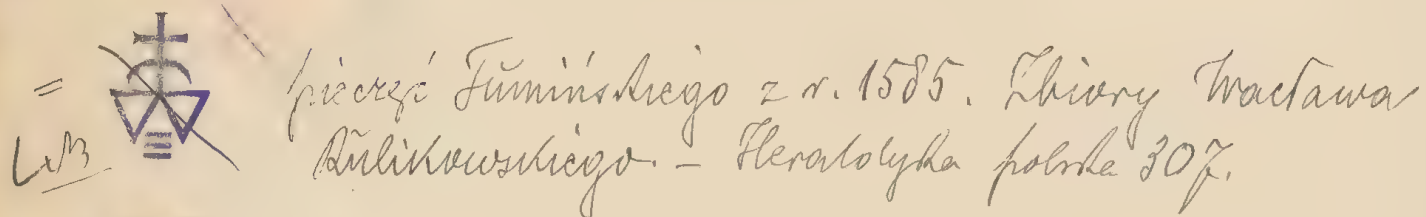 pieczęć Fumińskiego z r. 1585. Zbiory Wacława
Rulikowskiego. – Heraldyka polska 307.